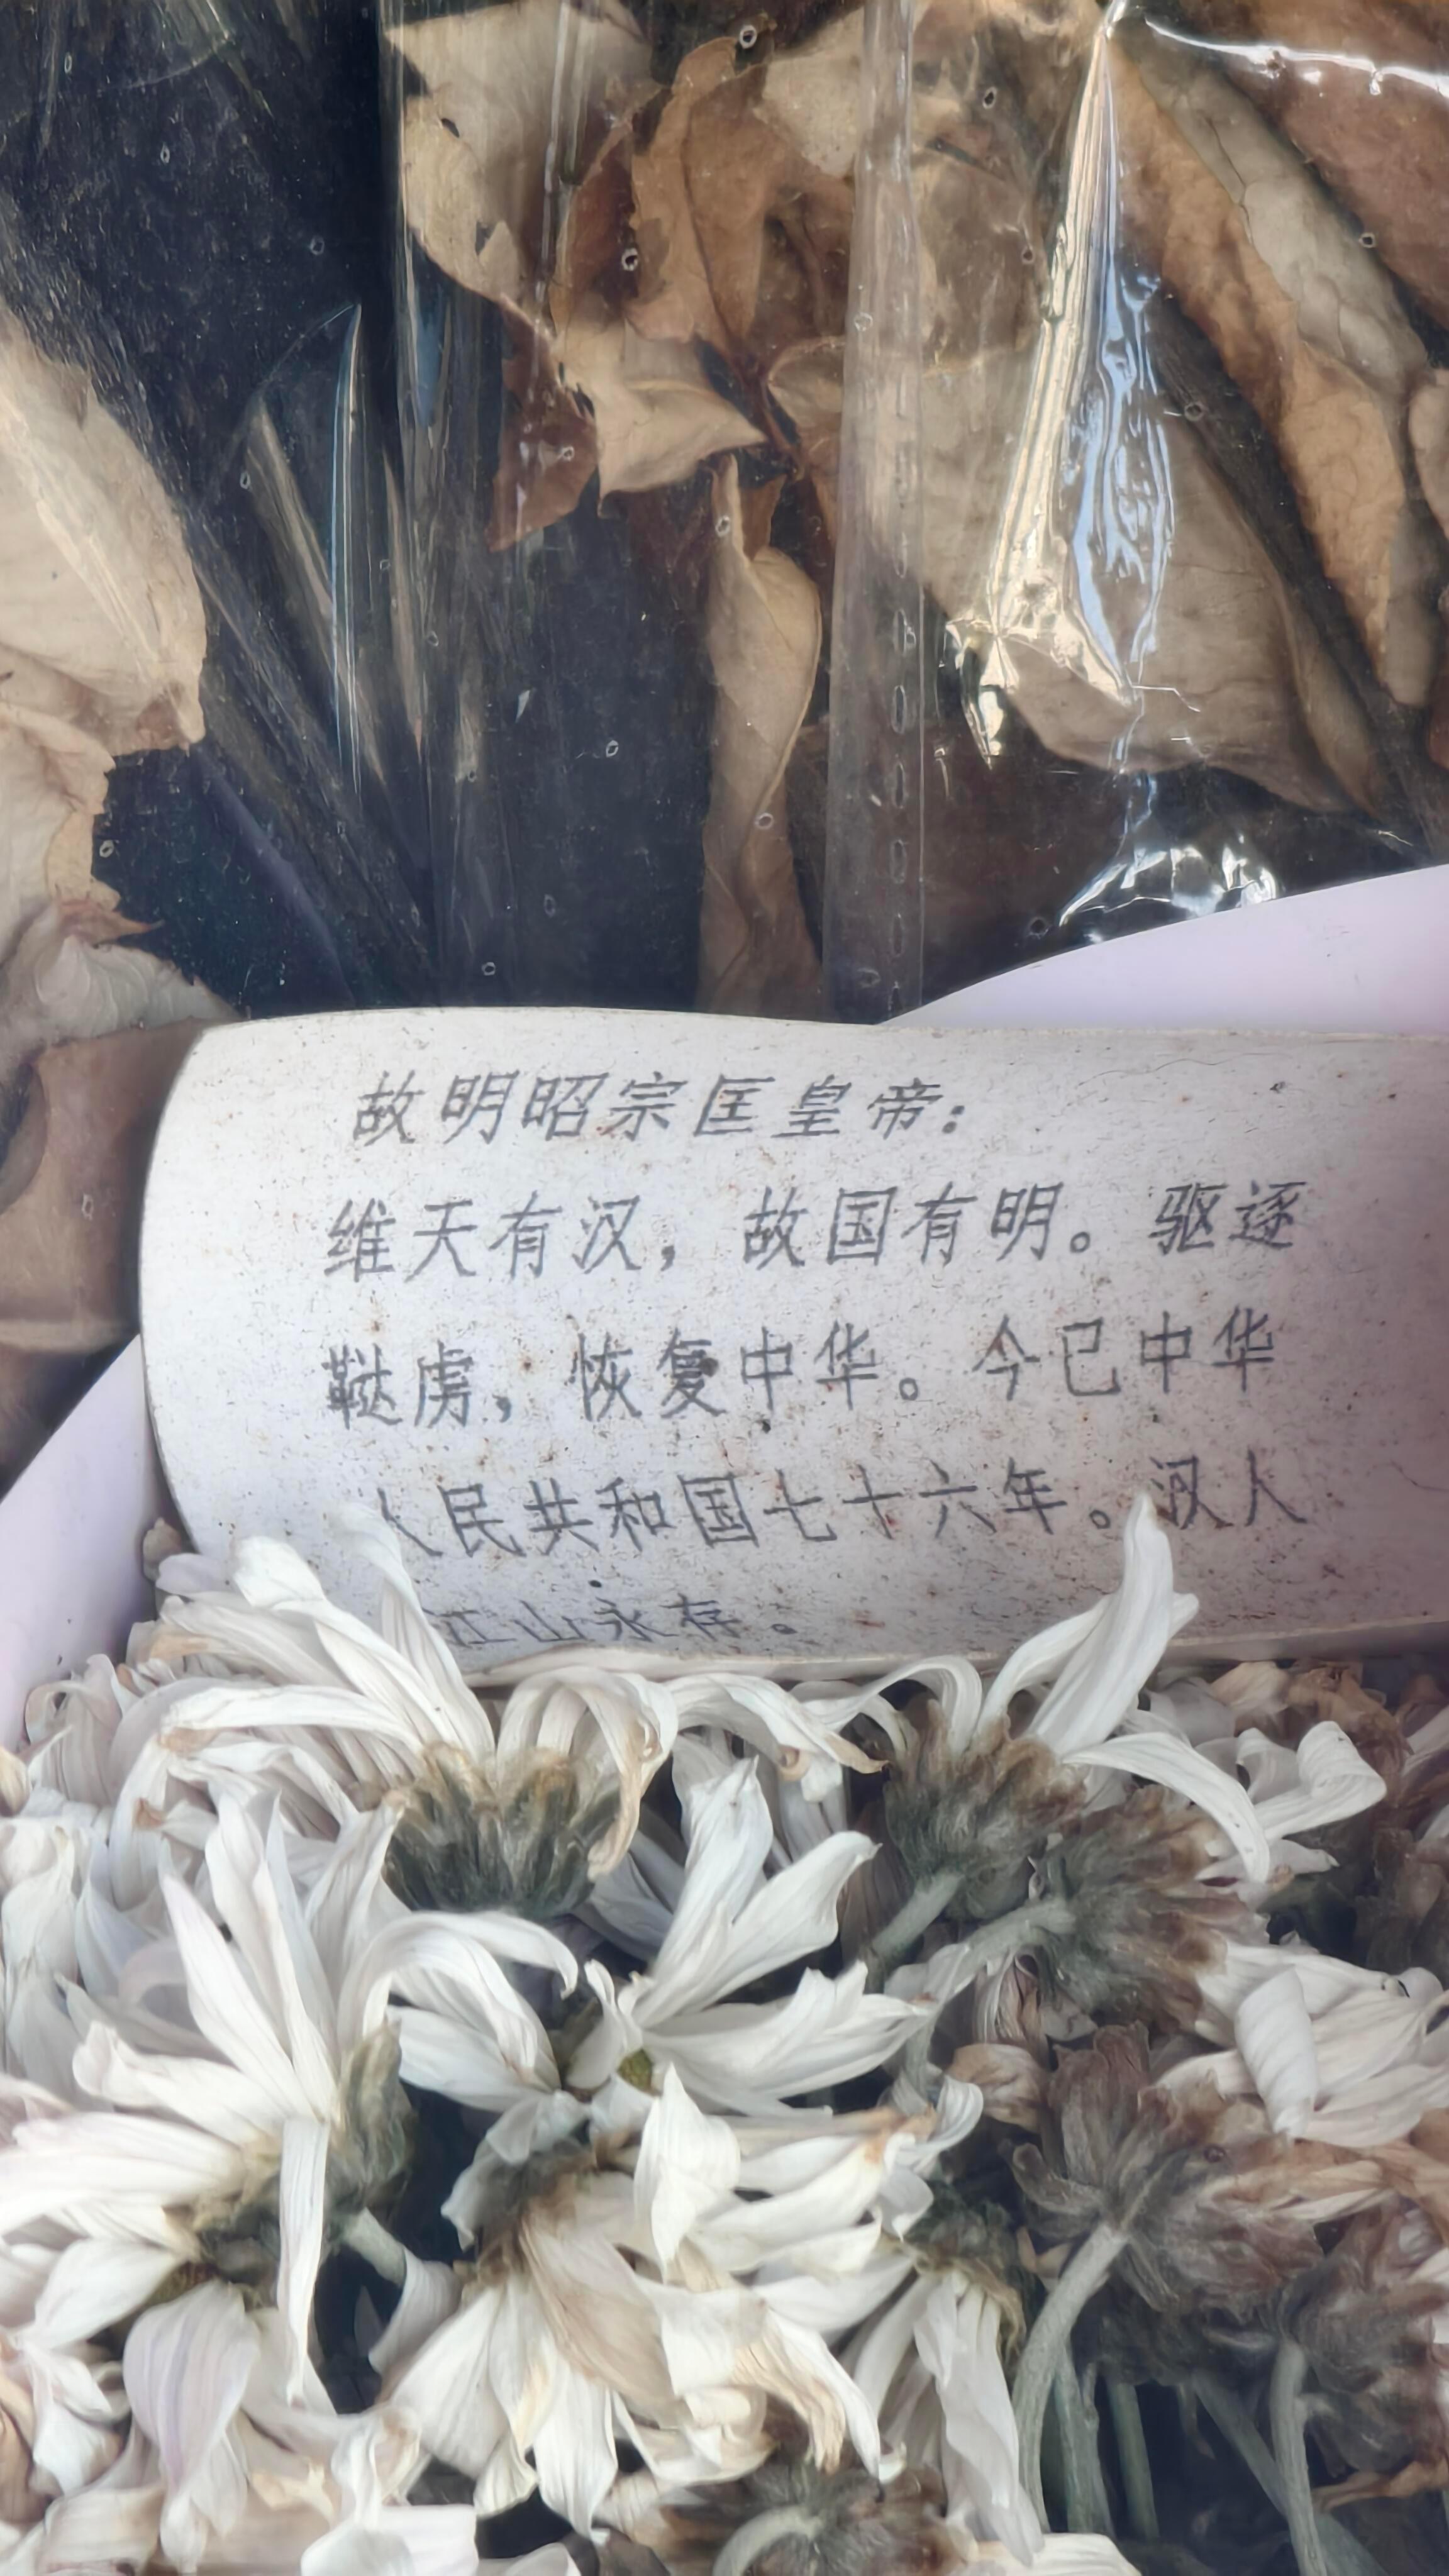 故明昭宗匡皇帝：
维天有汉，故国有明。驱逐
鞑虏，恢复中华。今已中华
人民共和国七十六年。汉人
江山永存。